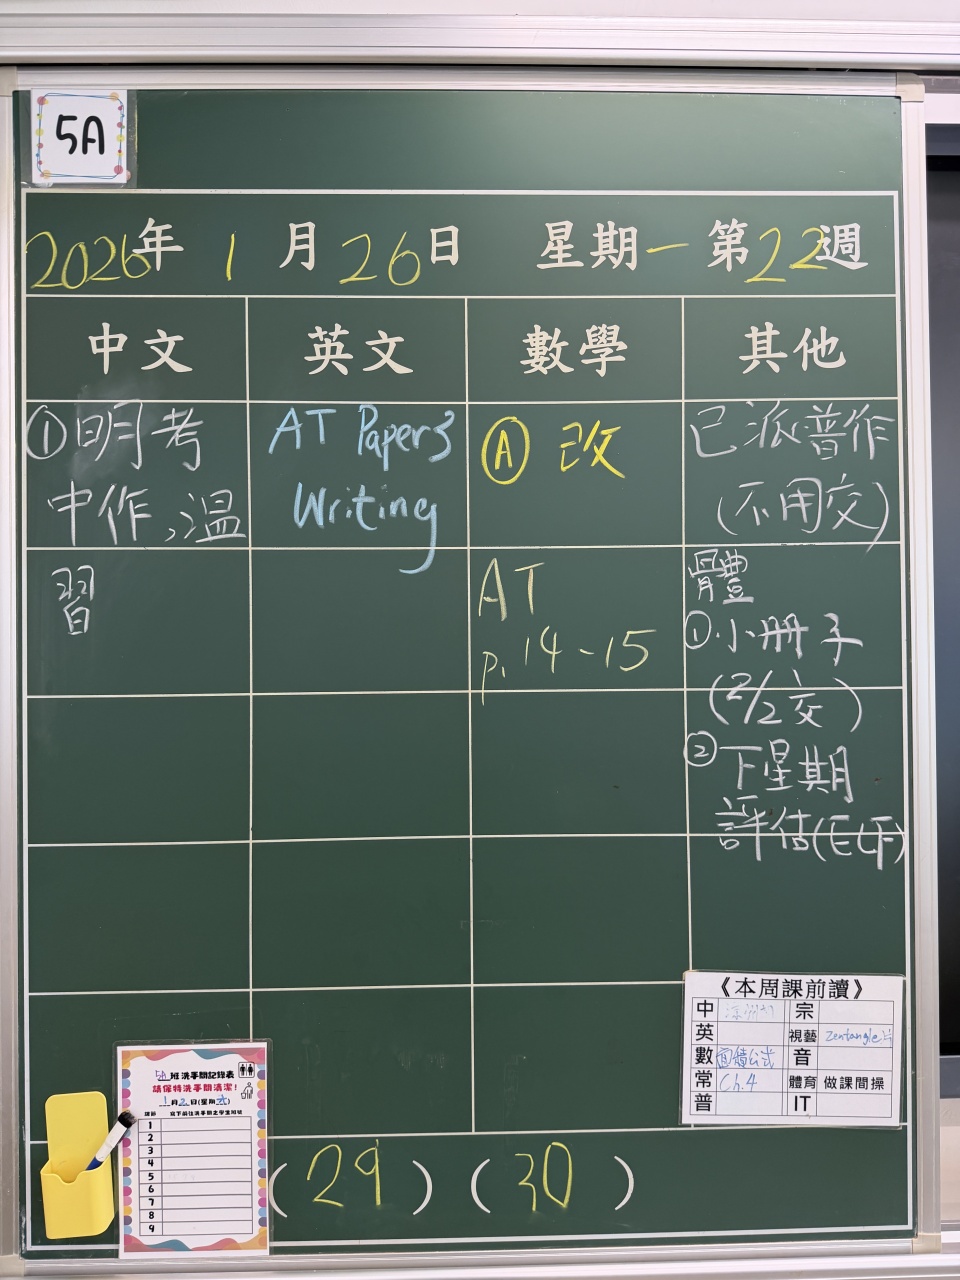 5A
2026年 1月26日 星期一 第22週
中文 英文 數學 其他
①明考
中作,溫
習
AT Paper 3
Writing
Ⓐ 改
AT
p. 14-15
已派普作
(不用交)
體
①小冊子
(2/2交)
②下星期
評估(ELF)
《本周課前讀》
中
宗
英
視藝 Zentangle
數 面積公式
音
常 Ch.4
體育 做課間操
普
IT
5A班洗手間記錄表
請保持洗手間清潔!
課節
1
2
3
4
5
6
7
8
9
(29) (30)